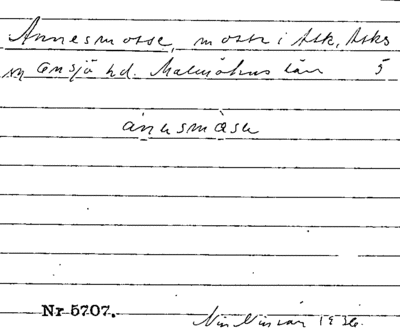 Annesmosse, mosse i Ask, Asks
sn Onsjö hd. Malmöhus län 5
ánesmòse
Nr 5707.
1936.